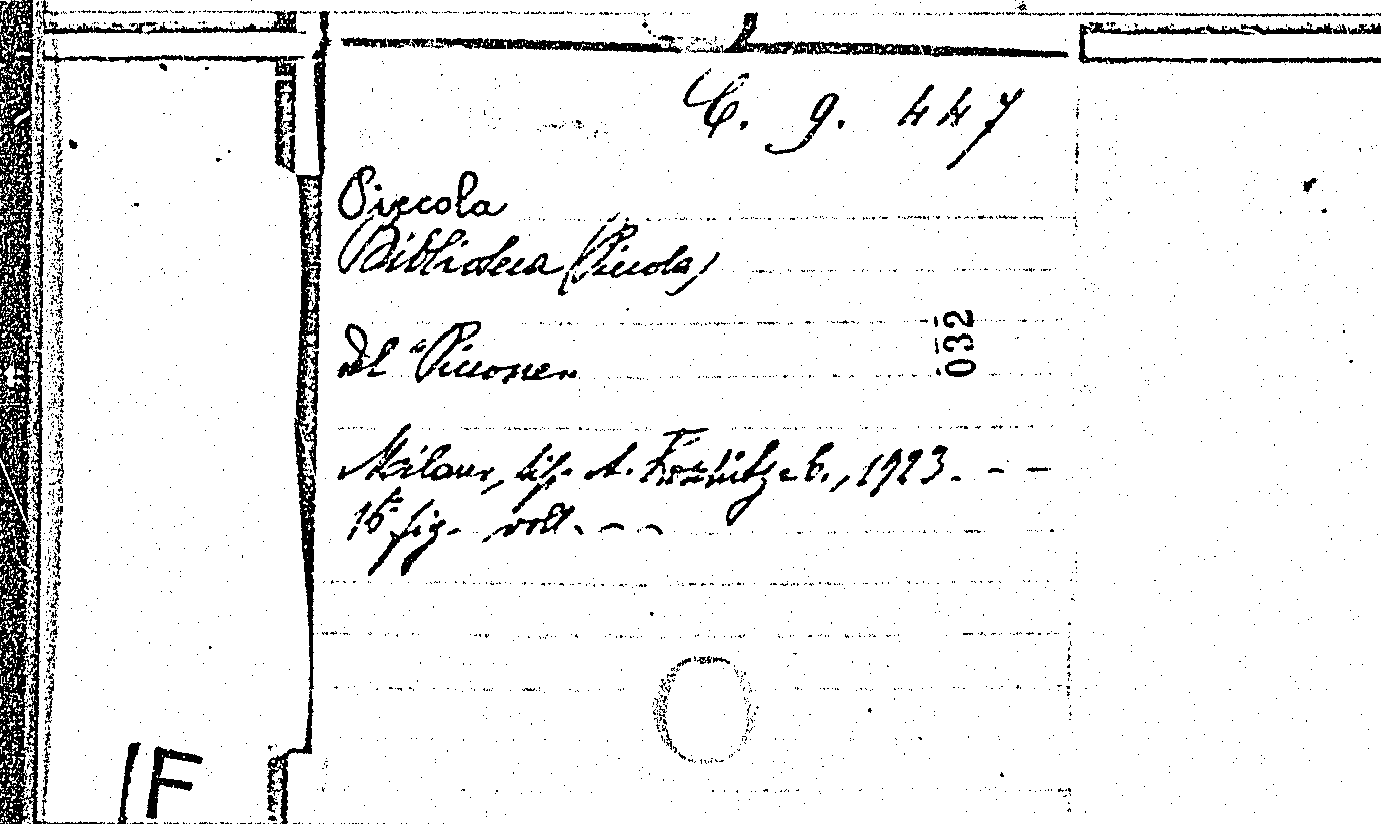 C. g. 447
Piccola
Biblioteca (Piccola)
032
del "Piccone"
Milano, tip. A. & C., 1923. - -
16° fig. voll. - -
IF